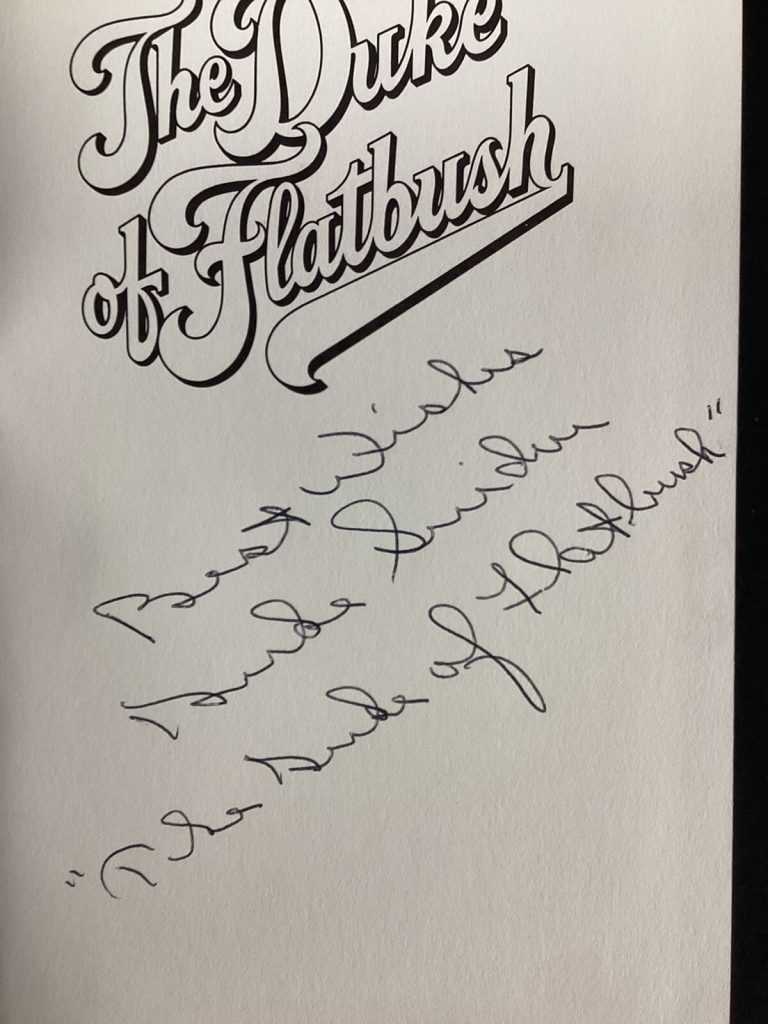 The Duke
of Flatbush
Best Wishes
Duke Snider
"The Duke of Flatbush"